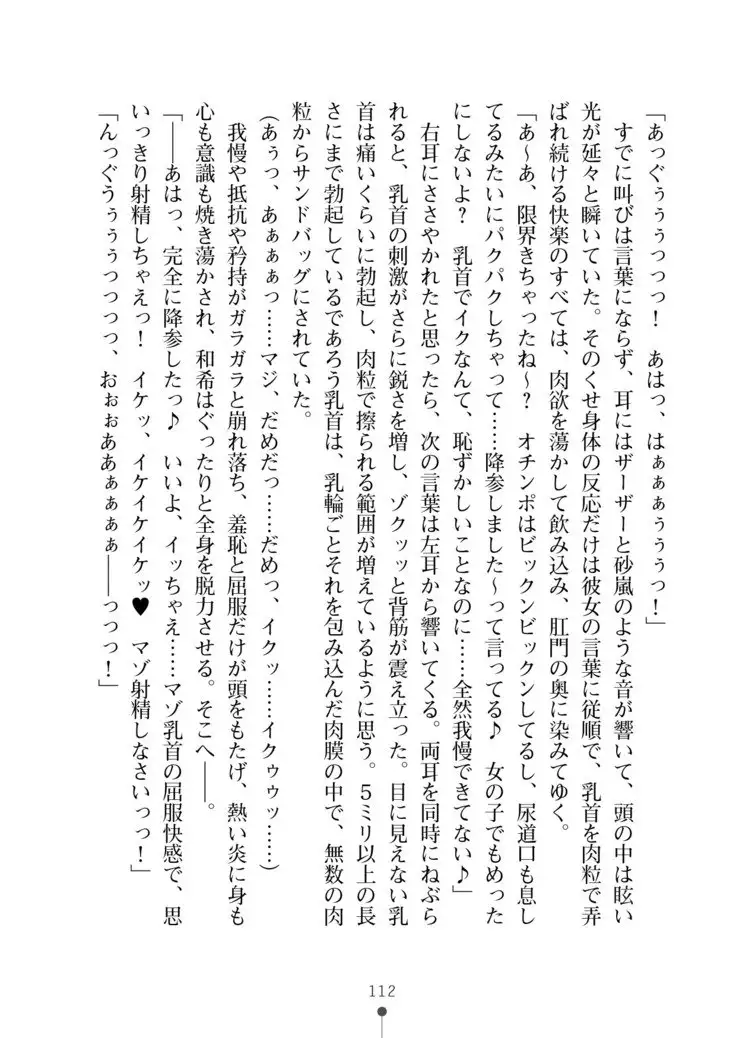 「あっぐぅぅぅつっっ！　あはっ、はぁぁぁぅぅぅっ！」
　すでに叫びは言葉にならず、耳にはザーザーと砂嵐のような音が響いて、頭の中は眩い
光が延々と瞬いていた。そのくせ身体の反応だけは彼女の言葉に従順で、乳首を肉粒で弄
ばれ続ける快楽のすべては、肉欲を蕩かして飲み込み、肛門の奥に染みてゆく。
「あ～あ、限界きちゃったね～？　オチンポはビックンビックンしてるし、尿道口も息し
てるみたいにパクパクしちゃって……降参しました～って言ってる♪　女の子でもめった
にしないよ？　乳首でイクなんて、恥ずかしいことなのに……全然我慢できてない♪」
　右耳にささやかれたと思ったら、次の言葉は左耳から響いてくる。両耳を同時にねぶら
れると、乳首の刺激がさらに鋭さを増し、ゾクッッと背筋が震え立った。目に見えない乳
首は痛いくらいに勃起し、肉粒で擦られる範囲が増えているように思う。５ミリ以上の長
さにまで勃起しているであろう乳首は、乳輪ごとそれを包み込んだ肉膜の中で、無数の肉
粒からサンドバッグにされていた。
（あぅっ、あぁぁぁっ……マジ、だめだっ……だめっ、イクッ……イクゥゥッ……）
　我慢や抵抗や矜持がガラガラと崩れ落ち、羞恥と屈服だけが頭をもたげ、熱い炎に身も
心も意識も焼き蕩かされ、和希はぐったりと全身を脱力させる。そこへ――。
「――あはっ、完全に降参したっ♪　いいよ、イッちゃえ……マゾ乳首の屈服快感で、思
いっきり射精しちゃえっ！　イケッ、イケイケイケッ♥　マゾ射精しなさいっっ！」
「んっぐうぅぅぅつっっっ、おぉぉああぁぁぁぁ――っっっ！」
112